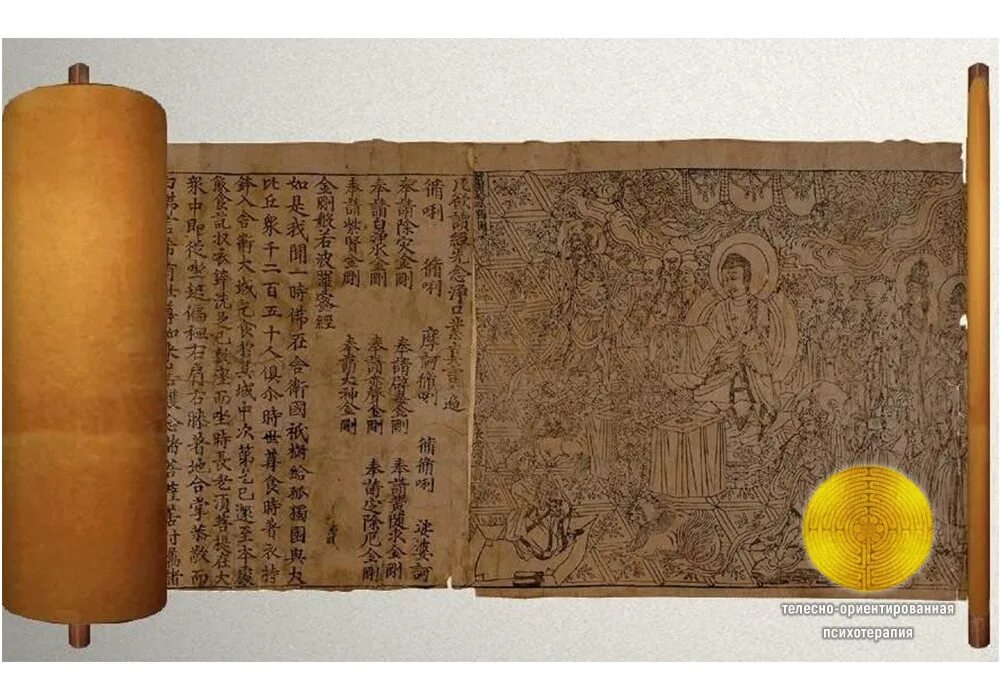 凡欲讀經先念淨口業真言一遍
脩唎 脩唎 摩訶脩唎 脩脩唎 娑婆訶
奉請除灾金剛 奉請辟毒金剛 奉請黃随求金剛
奉請白淨水金剛 奉請赤聲金剛 奉請定除厄金剛
奉請紫賢金剛 奉請大神金剛
金剛般若波羅蜜經
如是我聞一時佛在舍衛國祇樹給孤獨園與大
比丘衆千二百五十人俱尒時世尊食時着衣持
鉢入舍衛大城乞食於其城中次第乞已還至本處
飯食訖收衣鉢洗足已敷座而坐時長老須菩提在大
衆中即從坐起偏袒右肩右膝着地合掌恭敬而
白佛言希有世尊如來善護念諸菩薩善付囑諸
телесно-ориентированная
психотерапия